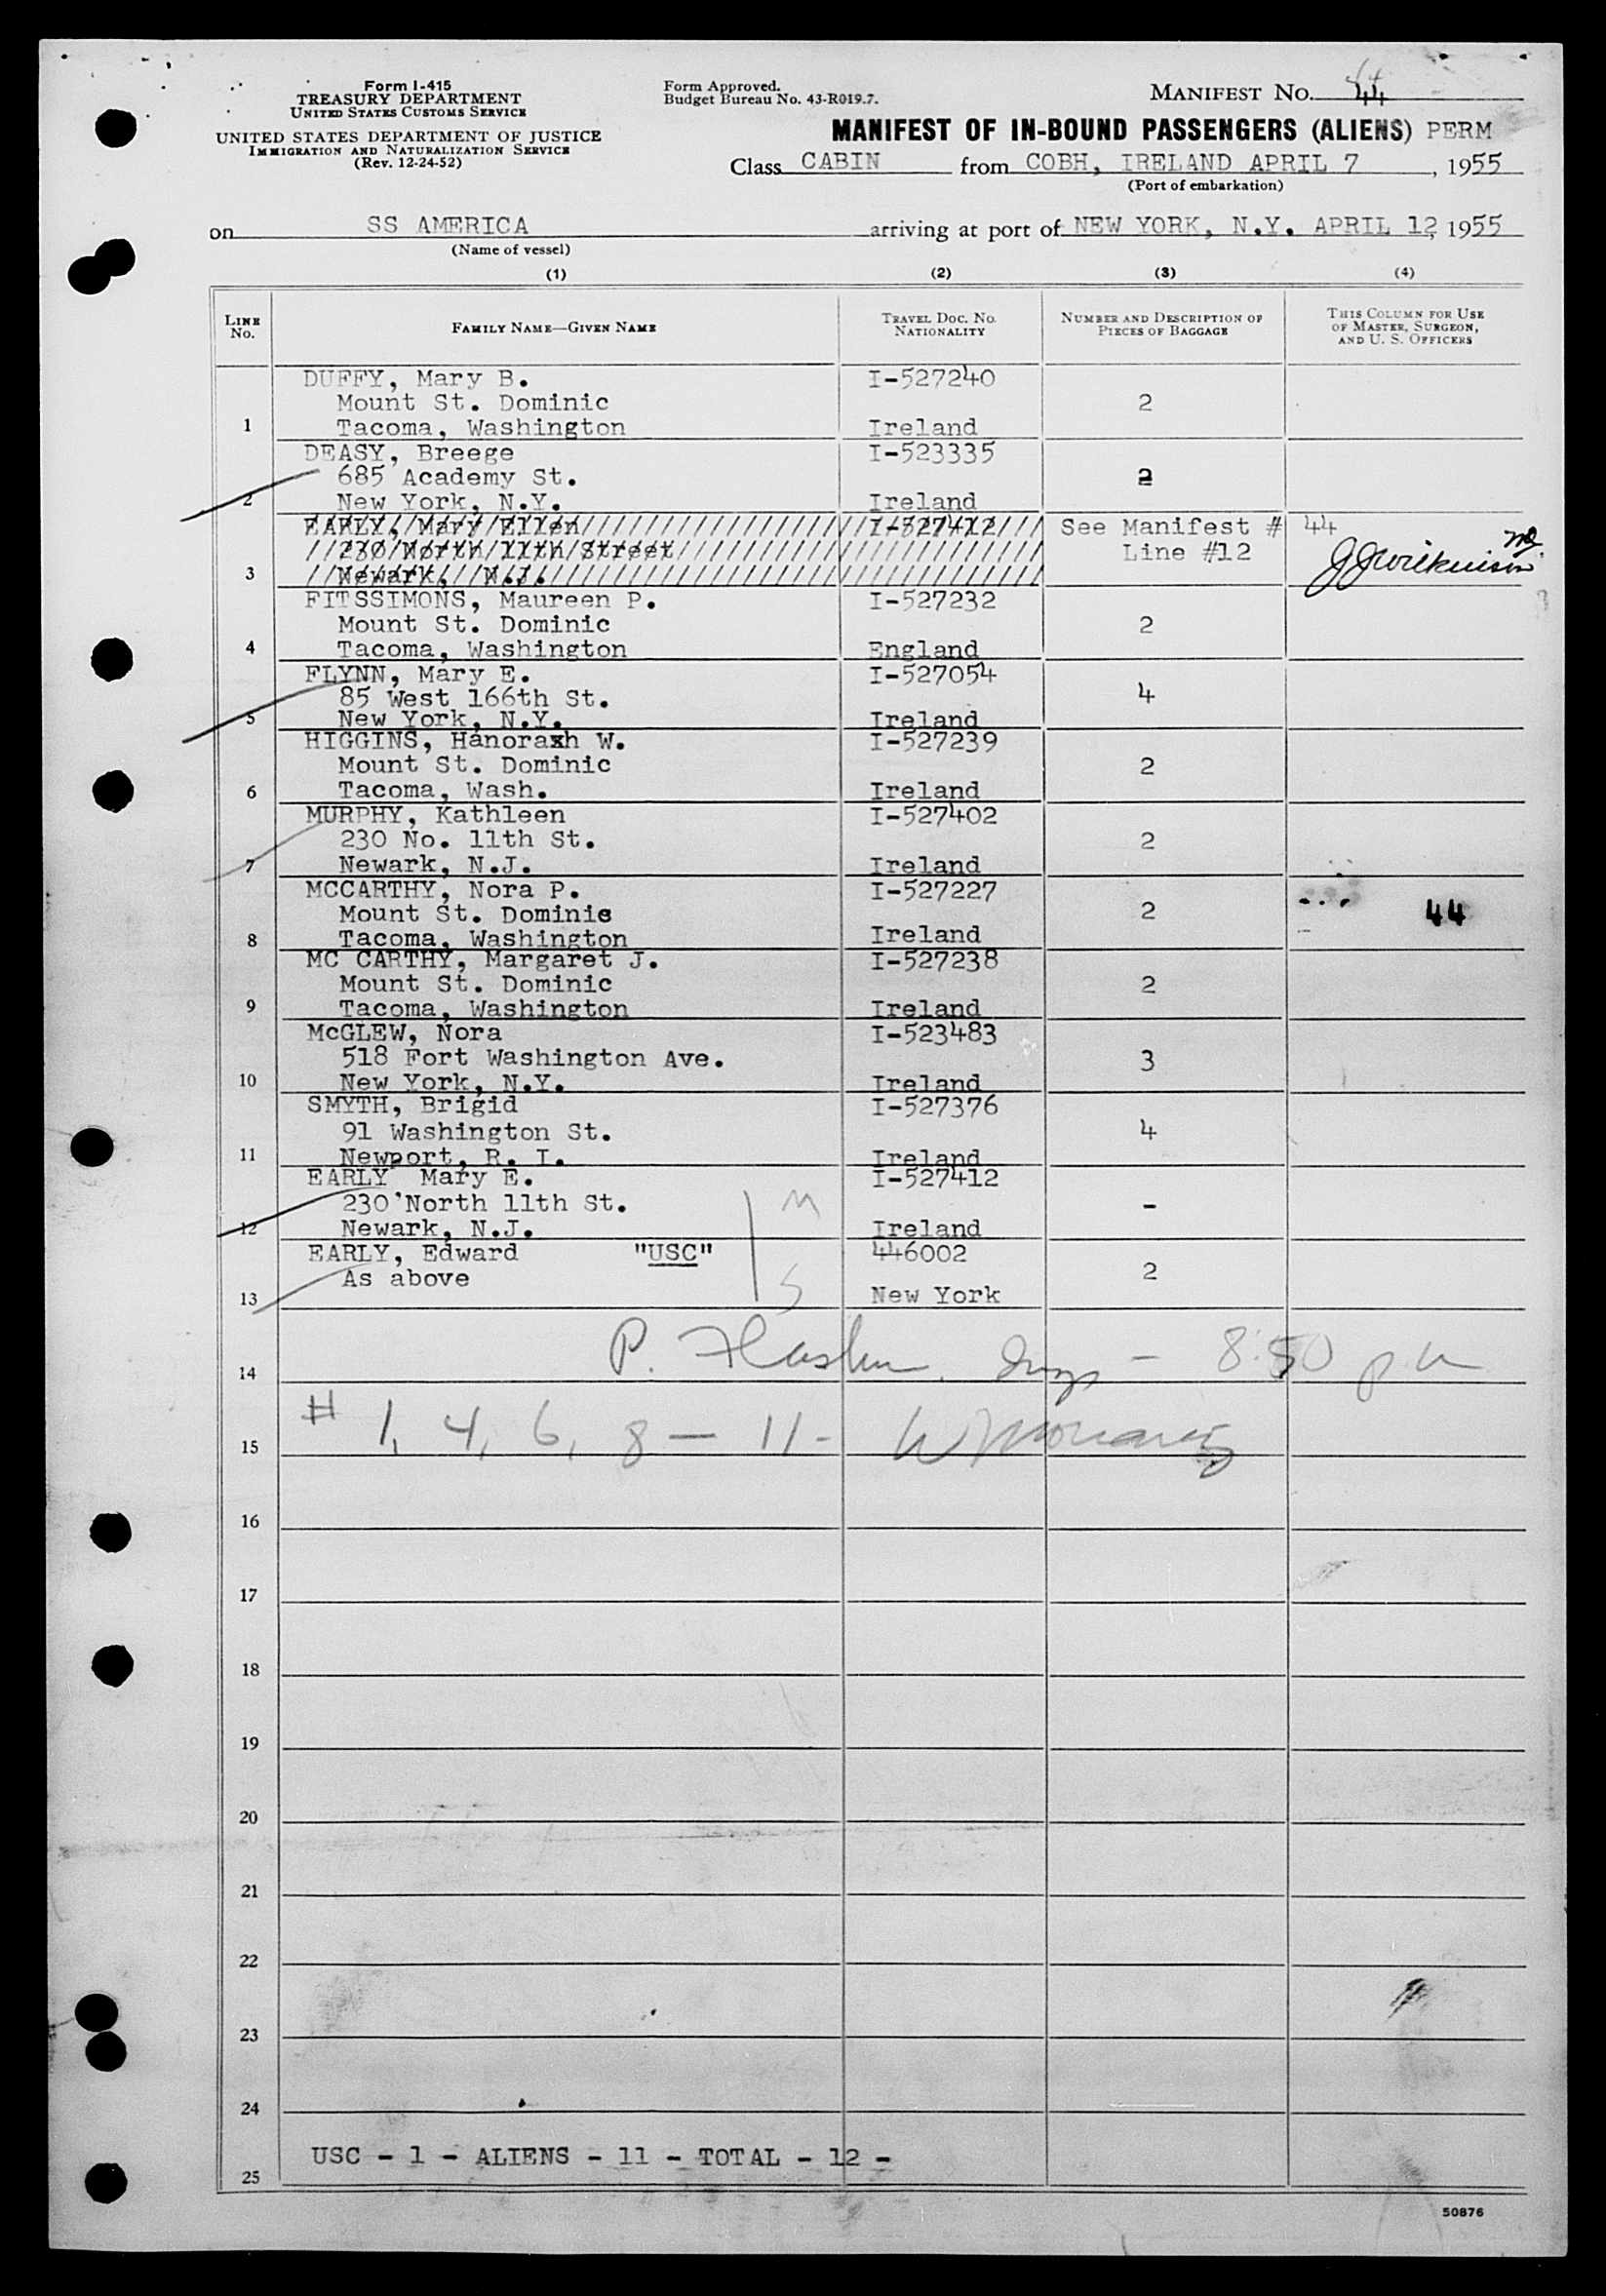 Form I-415
TREASURY DEPARTMENT
UNITED STATES CUSTOMS SERVICE
UNITED STATES DEPARTMENT OF JUSTICE
IMMIGRATION AND NATURALIZATION SERVICE
(Rev. 12-24-52)
Form Approved.
Budget Bureau No. 43-R019.7.
MANIFEST NO. 44
MANIFEST OF IN-BOUND PASSENGERS (ALIENS) PERM
Class CABIN from COBH, IRELAND APRIL 7, 1955
(Port of embarkation)
on SS AMERICA arriving at port of NEW YORK, N.Y. APRIL 12, 1955
(Name of vessel)
(1) (2) (3) (4)
LINE No. FAMILY NAME—GIVEN NAME TRAVEL DOC. NO. NATIONALITY NUMBER AND DESCRIPTION OF PIECES OF BAGGAGE THIS COLUMN FOR USE OF MASTER, SURGEON, AND U. S. OFFICERS
DUFFY, Mary B. I-527240
Mount St. Dominic 2
1 Tacoma, Washington Ireland
DEASY, Breege I-523335
685 Academy St. 2
2 New York, N.Y. Ireland
EARLY, Mary Ellen I-527412 See Manifest # 44
230 North 11th Street Line #12
3 Newark, N.J. JJWilkinson
FITSSIMONS, Maureen P. I-527232
Mount St. Dominic 2
4 Tacoma, Washington England
FLYNN, Mary E. I-527054
85 West 166th St. 4
5 New York, N.Y. Ireland
HIGGINS, Hanoraxh W. I-527239
Mount St. Dominic 2
6 Tacoma, Wash. Ireland
MURPHY, Kathleen I-527402
230 No. 11th St. 2
7 Newark, N.J. Ireland
MCCARTHY, Nora P. I-527227
Mount St. Dominic 2 44
8 Tacoma, Washington Ireland
MC CARTHY, Margaret J. I-527238
Mount St. Dominic 2
9 Tacoma, Washington Ireland
McGLEW, Nora I-523483
518 Fort Washington Ave. 3
10 New York, N.Y. Ireland
SMYTH, Brigid I-527376
91 Washington St. 4
11 Newport, R. I. Ireland
EARLY Mary E. I-527412
230 North 11th St. M -
12 Newark, N.J. Ireland
EARLY, Edward "USC" 446002
As above S 2
13 New York
14 P. 8:50 p.m
15 # 1, 4, 6, 8 — 11 -
16
17
18
19
20
21
22
23
24
USC - 1 - ALIENS - 11 - TOTAL - 12 -
25
50876